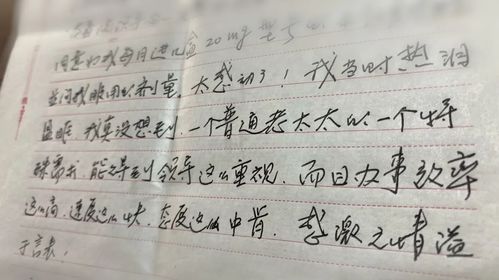 同意给我每月进几盒20mg
并问我服用的剂量，太感动了！我当时热泪
盈眶，我真没想到，一个普通老太太的一个特
殊需求，能得到领导这么重视，而且办事效率
这么高，速度这么快，态度这么中肯，感激之情溢
于言表，